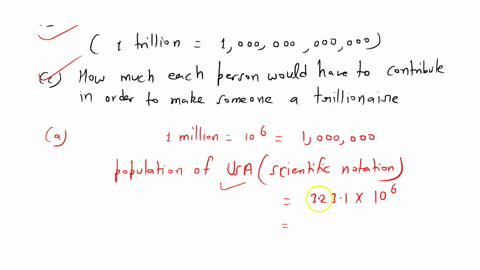 ( 1 trillion = 1,000,000,000,000)
(c) How much each person would have to contribute
in order to make someone a trillionaire
(a) 1 million = 10⁶ = 1,000,000
population of USA (scientific notation)
= 323.1 X 10⁶
=